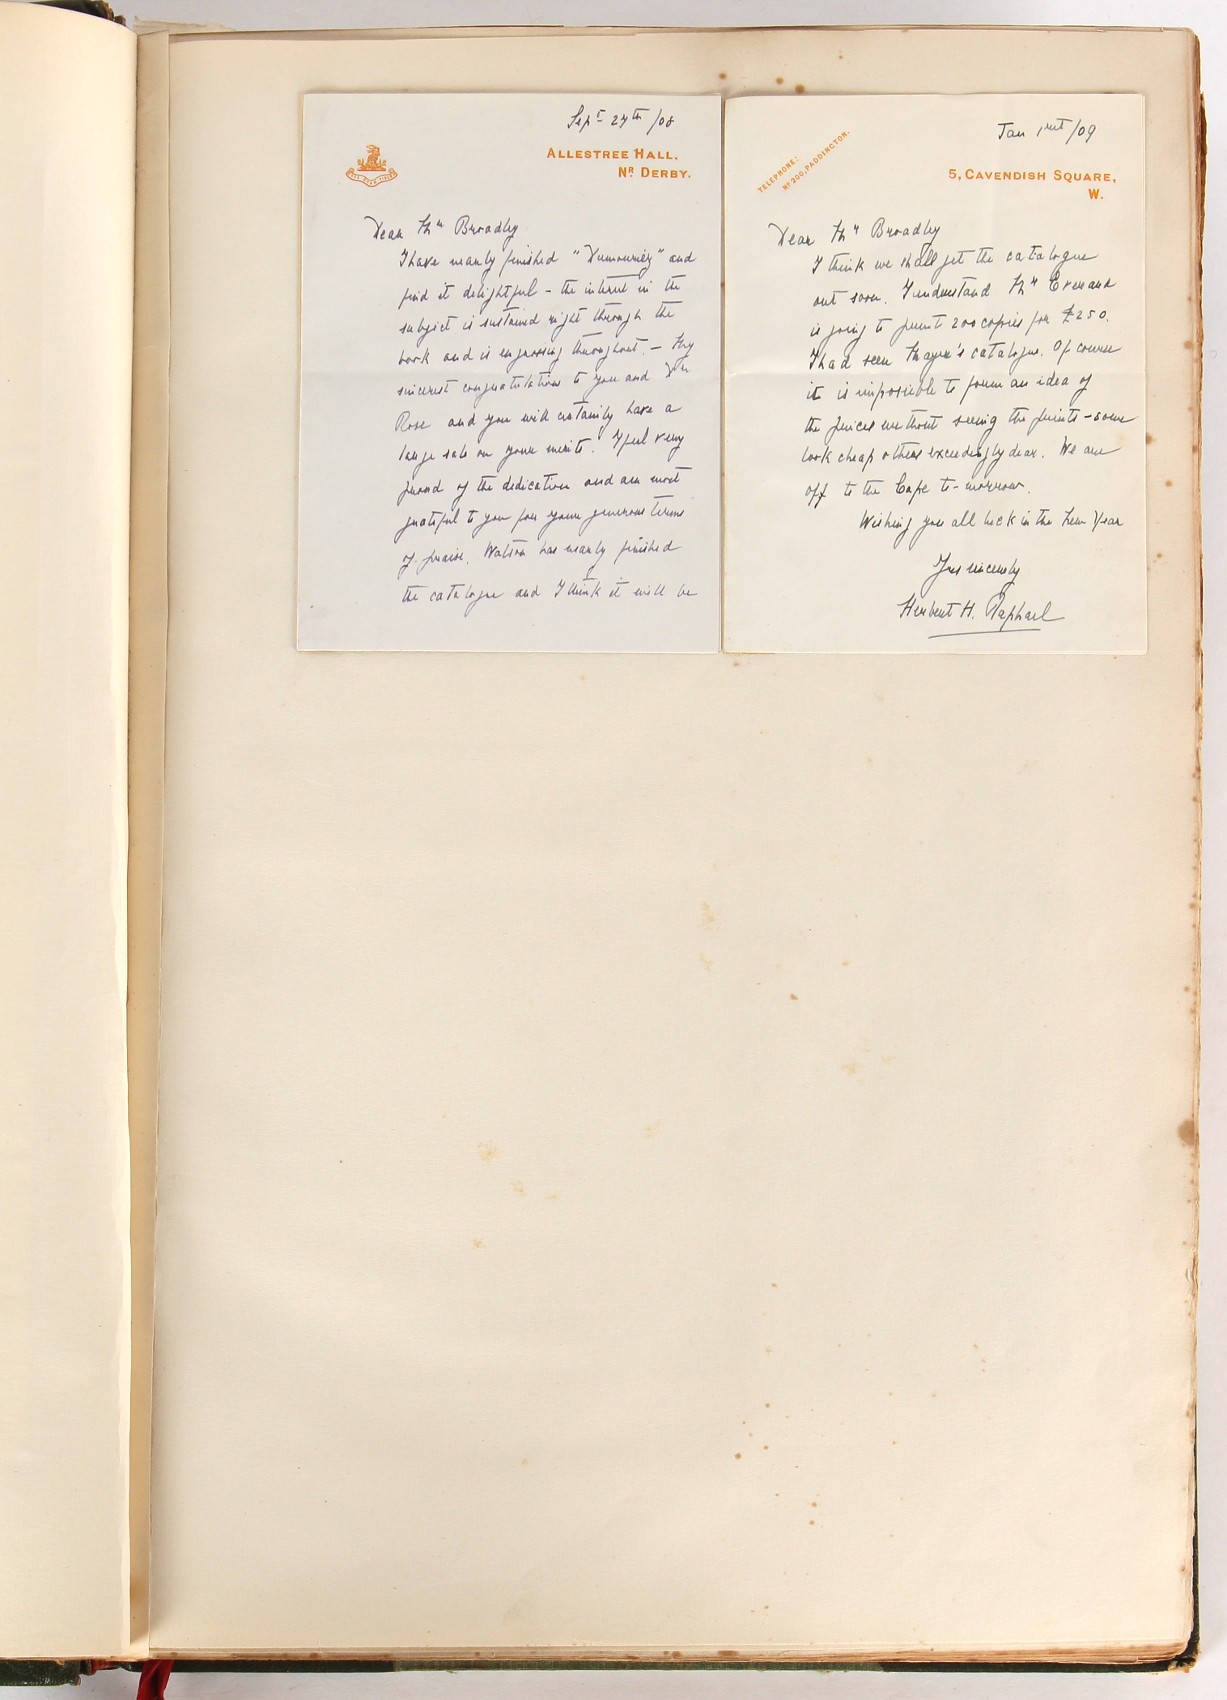 Sept 27th /08
ALLESTREE HALL,
NR DERBY.
Dear Mr Broadley
I have nearly finished "Dumouriez" and
find it delightful – the interest in the
subject is sustained right through the
book and is engrossing throughout. – My
sincerest congratulations to you and Dr
Rose and you will certainly have a
large sale on your merits. I feel very
proud of the dedication and am most
grateful to you for your generous terms
of praise. Watson has nearly finished
the catalogue and I think it will be
Jan 1st /09
TELEPHONE:
No 200, PADDINGTON.
5, CAVENDISH SQUARE,
W.
Dear Mr Broadley
I think we shall get the catalogue
out soon. I understand Mr Everard
is going to print 200 copies for £250.
I had seen Thayer's catalogue. Of course
it is impossible to form an idea of
the prices without seeing the prints – some
look cheap others exceedingly dear. We are
off to the Cape to-morrow.
Wishing you all luck in the New Year
Yrs sincerely
Herbert H. Raphael